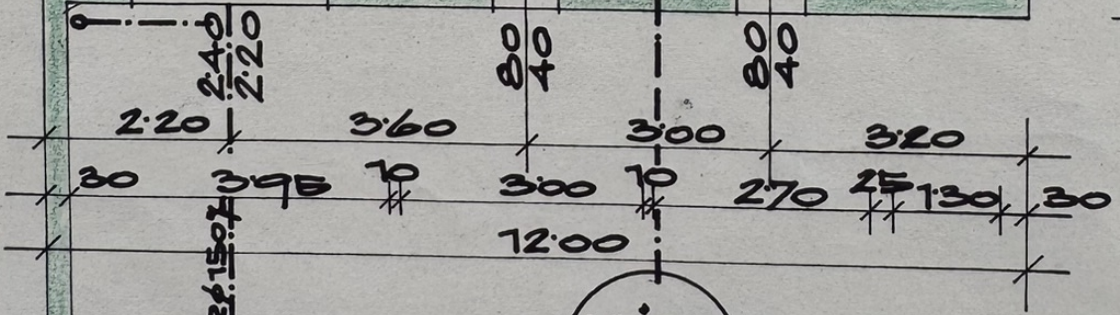 2.40
2.20
80
40
80
40
2.20 3.60 3.00 3.20
30 3.95 10 3.00 10 2.70 25 1.30 30
12.00